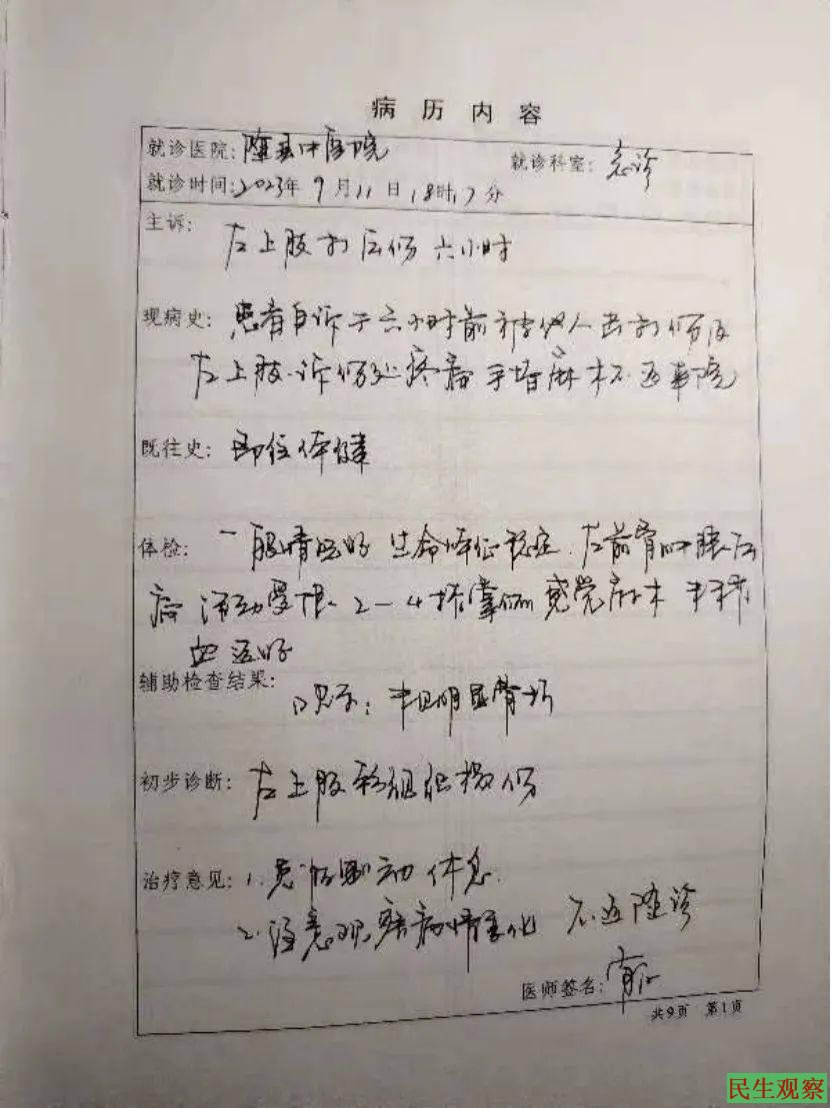 病历内容
就诊医院:随县中医院 就诊科室:急诊
就诊时间:2023年9月11日18时17分
主诉:左上肢打后伤六小时
现病史:患者自诉于六小时前被他人击打伤及
左上肢.诉伤处疼痛 手指麻木不适来院
既往史:即往体健
体检:一般情况好 生命体征稳定.左前臂 肿胀压
痛 活动受限 2-4指掌侧感觉麻木
血运好
辅助检查结果:
DR示:未见明显骨折
初步诊断:左上肢软组织损伤
治疗意见:1.患肢制动 休息.
2.注意观察病情变化 不适随诊
医师签名:
共9页 第1页
民生观察